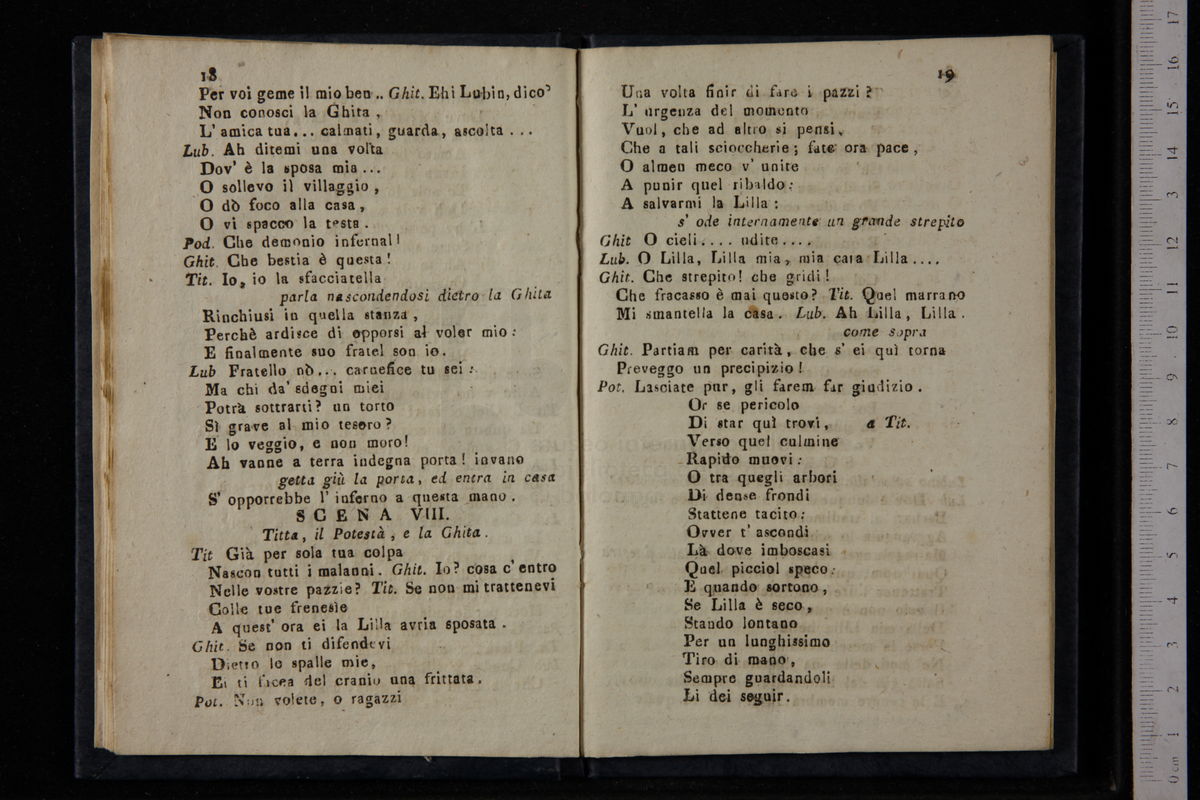 18
Per voi geme il mio ben .. Ghit. Ehi Lubin, dico
Non conosci la Ghita,
L' amica tua... calmati, guarda, ascolta ...
Lub. Ah ditemi una volta
Dov' è la sposa mia ...
O sollevo il villaggio,
O dò foco alla casa,
O vi spacco la testa.
Pod. Che demonio infernal!
Ghit. Che bestia è questa!
Tit. Io, io la sfacciatella
parla nascondendosi dietro la Ghita
Rinchiusi in quella stanza,
Perchè ardisce di opporsi al voler mio:
E finalmente suo fratel son io.
Lub Fratello nò... carnefice tu sei:
Ma chi da' sdegni miei
Potrà sottrarti? un torto
Sì grave al mio tesoro?
E lo veggio, e non moro!
Ah vanne a terra indegna porta! invano
getta giù la porta, ed entra in casa
S' opporrebbe l' inferno a questa mano.
SCENA VIII.
Titta, il Potestà, e la Ghita.
Tit Già per sola tua colpa
Nascon tutti i malanni. Ghit. Io? cosa c' entro
Nelle vostre pazzie? Tit. Se non mi trattenevi
Colle tue frenesìe
A quest' ora ei la Lilla avria sposata.
Ghit. Se non ti difendevi
Dietro le spalle mie,
Ei ti facea del cranio una frittata.
Pot. Non volete, o ragazzi
19
Una volta finir di fare i pazzi?
L' urgenza del momento
Vuol, che ad altro si pensi,
Che a tali scioccherie; fate ora pace,
O almen meco v' unite
A punir quel ribaldo:
A salvarmi la Lilla:
s' ode internamente un grande strepito
Ghit O cieli.... udite....
Lub. O Lilla, Lilla mia, mia cara Lilla....
Ghit. Che strepito! che gridi!
Che fracasso è mai questo? Tit. Quel marrano
Mi smantella la casa. Lub. Ah Lilla, Lilla.
come sopra
Ghit. Partiam per carità, che s' ei quì torna
Preveggo un precipizio!
Pot. Lasciate pur, gli farem far giudizio.
Or se pericolo
Di star quì trovi, a Tit.
Verso quel culmine
Rapido muovi:
O tra quegli arbori
Di dense frondi
Stattene tacito:
Ovver t' ascondi
Là dove imboscasi
Quel picciol speco:
E quando sortono,
Se Lilla è seco,
Stando lontano
Per un lunghissimo
Tiro di mano,
Sempre guardandoli
Li dei seguir.